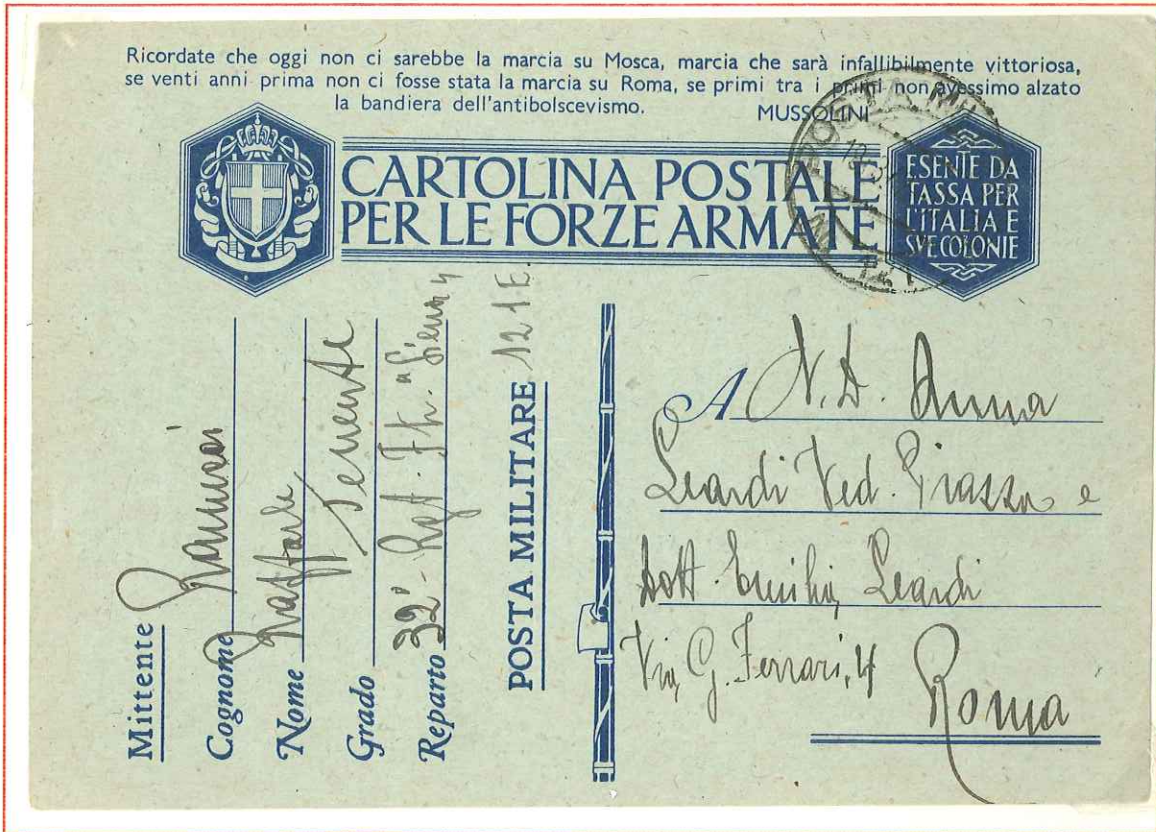 Ricordate che oggi non ci sarebbe la marcia su Mosca, marcia che sarà infallibilmente vittoriosa,
se venti anni prima non ci fosse stata la marcia su Roma, se primi tra i primi non avessimo alzato
la bandiera dell'antibolscevismo. MUSSOLINI
CARTOLINA POSTALE
PER LE FORZE ARMATE
ESENTE DA
TASSA PER
L'ITALIA E
SVE COLONIE
POSTA MIL
Mittente
Cognome
Nome Raffaele
Grado Tenente
Reparto 32° Rgt. Ftr. "Siena"
POSTA MILITARE 121 E.
A N. D. Anna
Leardi Ved. Piazza e
Dott. Emilia Leardi
Via G. Ferrari, 4
Roma